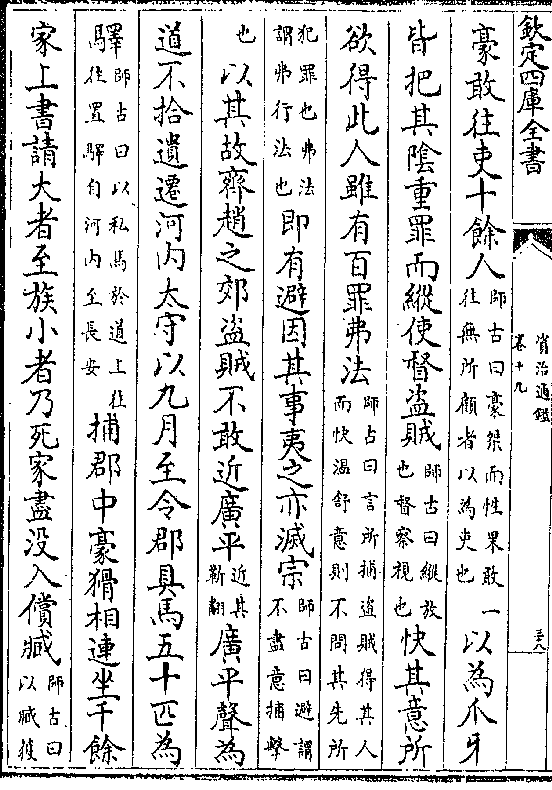 欽定四庫全書
資治通鑑
卷十九
豪敢往吏十餘人師古曰豪桀而性果敢一往無所顧者以為吏也以為爪牙
皆把其陰重罪而縱使督盜賊師古曰縱放也督察視也快其意所
欲得此人雖有百罪弗法師古曰言所捕盜賊得其人而快溫舒意則不問其先所
犯罪也弗法謂弗行法也即有避因其事夷之亦滅宗師古曰避謂不盡意捕擊
也以其故齊趙之郊盜賊不敢近廣平近其靳翻廣平聲為
道不拾遺遷河内太守以九月至令郡具馬五十匹為
驛師古曰以私馬於道上往往置驛自河内至長安捕郡中豪猾相連坐千餘
家上書請大者至族小者乃死家盡没入償臧師古曰以臧彼